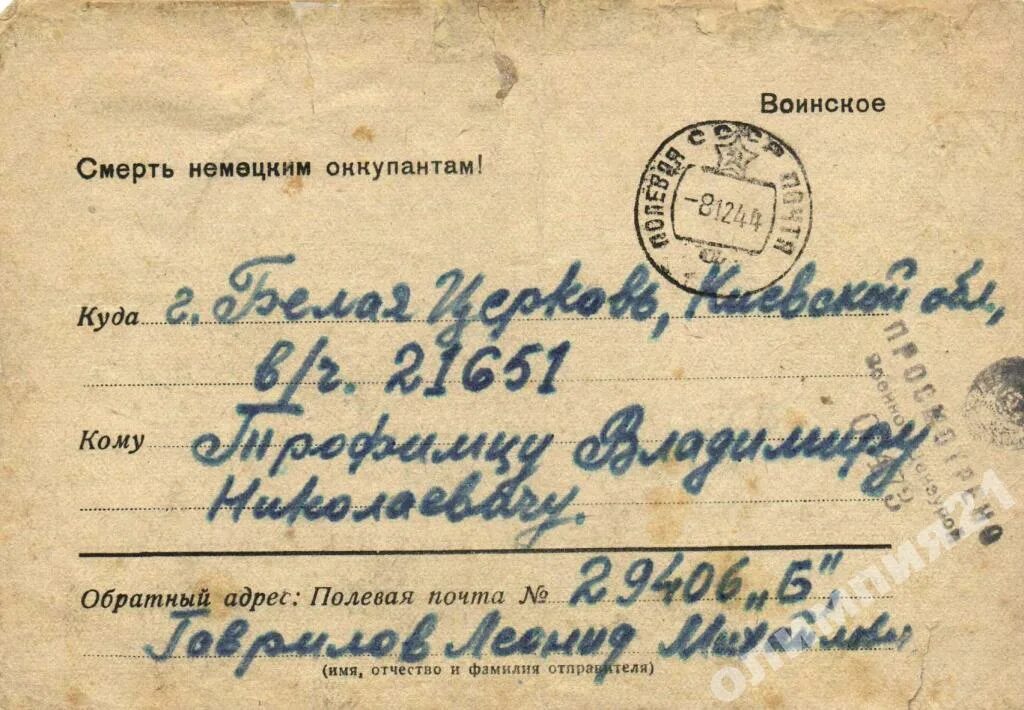 Воинское
Смерть немецким оккупантам!
ПОЛЕВАЯ СССР ПОЧТА
-81244
Куда г. Белая Церковь, Киевской обл,
в/ч. 21651
Кому Трофимцу Владимиру
Николаевичу.
ПРОСМОТРЕНО
Военной Цензурой
Обратный адрес: Полевая почта № 29406 „Б",
Гаврилов Леонид
(имя, отчество и фамилия отправителя)
олимпия21